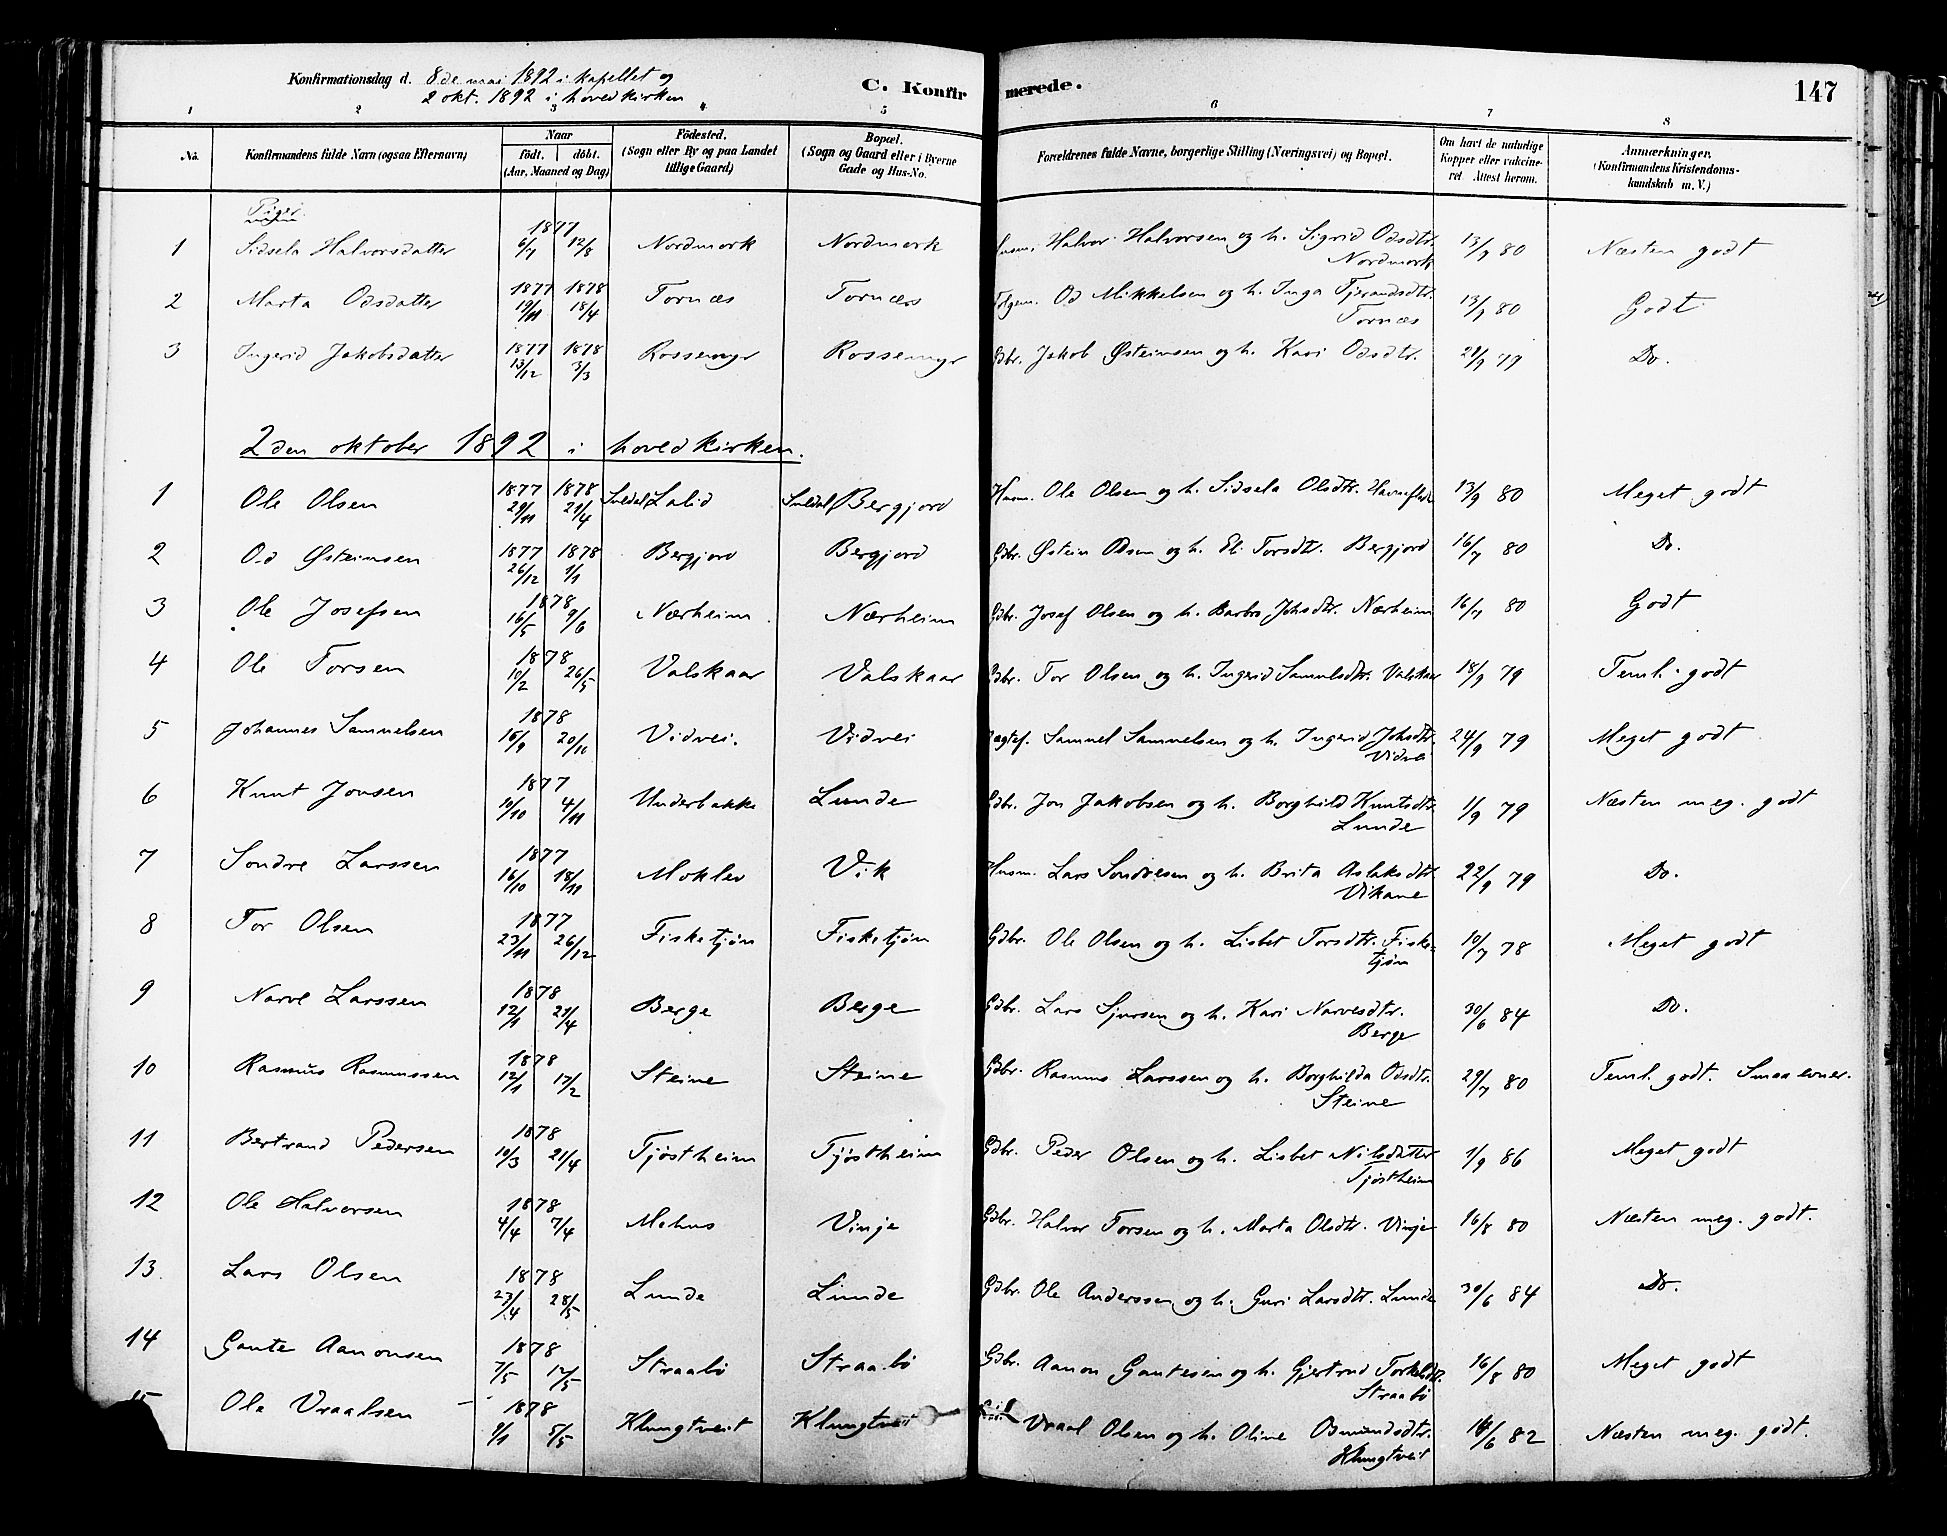 Konfirmationsdag d. 8de mai 1892 i kapellet og
2 okt. 1892 i hovedkirken
C. Konfirmerede.
147
1 2 3 4 5 6 7 8
No. Konfirmandens fulde Navn (ogsaa Efternavn) Naar födt. döbt. (Aar, Maaned og Dag) Födested. (Sogn eller By og paa Landet tillige Gaard) Bopæl. (Sogn og Gaard eller i Byerne Gade og Hus-No. Forældrenes fulde Navne, borgerlige Stilling (Næringsvei) og Bopæl. Om havt de naturlige Kopper eller vakcineret. Attest herom. Anmærkninger. (Konfirmandens Kristendomskundskab m. V.)
Piger.
1 Sidsela Halvorsdatter 1877 6/7 12/8 Nordmork Nordmork Husm. Halvor Halvorsen og h. Sigrid Odsdtr. Nordmork 13/9 80 Næsten godt
2 Marta Odsdatter 1877 19/11 1878 18/4 Tornæs Tornæs Od Mikkelsen og h. Inga Tjerandsdtr. Tornæs 13/9 80 Godt
3 Ingerid Jakobsdatter 1877 13/12 1878 3/3 Rossemyr Rossemyr Gdbr. Jakob Østeinsen og h. Kari Odsdtr. 29/9 79 Do.
2den oktober 1892 i hovedkirken.
1 Ole Olsen 1877 29/11 1878 21/4 Suldal Lalid Suldal Bergjord Husm. Ole Olsen og h. Sidsela Olsdtr. 13/9 80 Meget godt
2 Od Østeinsen 1877 26/12 1878 1/1 Bergjord Bergjord Gdbr. Østein Odsen og h. Eli Torsdtr. Bergjord 16/7 80 Do.
3 Ole Josefsen 1878 16/5 9/6 Nærheim Nærheim Gdbr. Josef Olsen og h. Barbro Johsdtr. Nærheim 16/7 80 Godt
4 Ole Torsen 1878 10/2 26/5 Valskaar Valskaar Gdbr. Tor Olsen og h. Ingerid Samuelsdtr. Valskaar 18/9 79 Teml. godt
5 Johannes Samuelsen 1878 15/9 20/10 Vidvei. Vidvei Samuel Samuelsen og h. Ingerid Johsdtr. Vidvei 24/9 79 Meget godt
6 Knut Jonsen 1877 10/10 4/11 Underbakke Lunde Gdbr. Jon Jakobsen og h. Borghild Knutsdtr. Lunde 1/9 79 Næsten meg. godt
7 Sondre Larssen 1877 16/10 18/11 Moklev Vik Husm. Lars Sondresen og h. Brita Aslaksdtr Vikane 22/9 79 Do.
8 Tor Olsen 1877 23/11 26/12 Fisketjøn Fisketjøn Gdbr. Ole Olsen og h. Lisbet Torsdtr. Fisketjøn 10/7 78 Meget godt
9 Narve Larssen 1878 12/1 21/4 Berge Berge Gdbr. Lars Sjursen og h. Kari Narvesdtr. Berge 30/6 84 Do.
10 Rasmus Rasmussen 1878 12/1 17/2 Steine Steine Gdbr. Rasmus Larssen og h. Borghilda Odsdtr. Steine 29/7 80 Teml. godt. Smaa evner.
11 Bertrand Pedersen 1878 10/3 21/4 Tjøstheim Tjøstheim Gdbr. Peder Olsen og h. Lisbet Nilsdatter Tjøstheim 1/9 86 Meget godt
12 Ole Halvorsen 1878 4/4 7/4 Mehus Vinje Gdbr. Halvor Torsen og h. Marta Olsdtr. Vinje 16/8 80 Næsten meg. godt.
13. Lars Olsen 1878 23/4 28/5 Lunde Lunde Gdbr. Ole Anderssen og h. Guri Larsdtr. Lunde 30/6 84 Do.
14 Gaute Aanonsen 1878 7/5 17/5 Straabø Straabø Gdbr. Aanon Gautesen og h. Gjertrud Torkelsdtr. Straabø 16/8 80 Meget godt
15 Ole Vraalsen 1878 9/1 5/5 Klungtveit Klungtveit Vraal Olsen og h. Oline Osmundsdtr. Klungtveit 14/6 82 Næsten meg. godt.